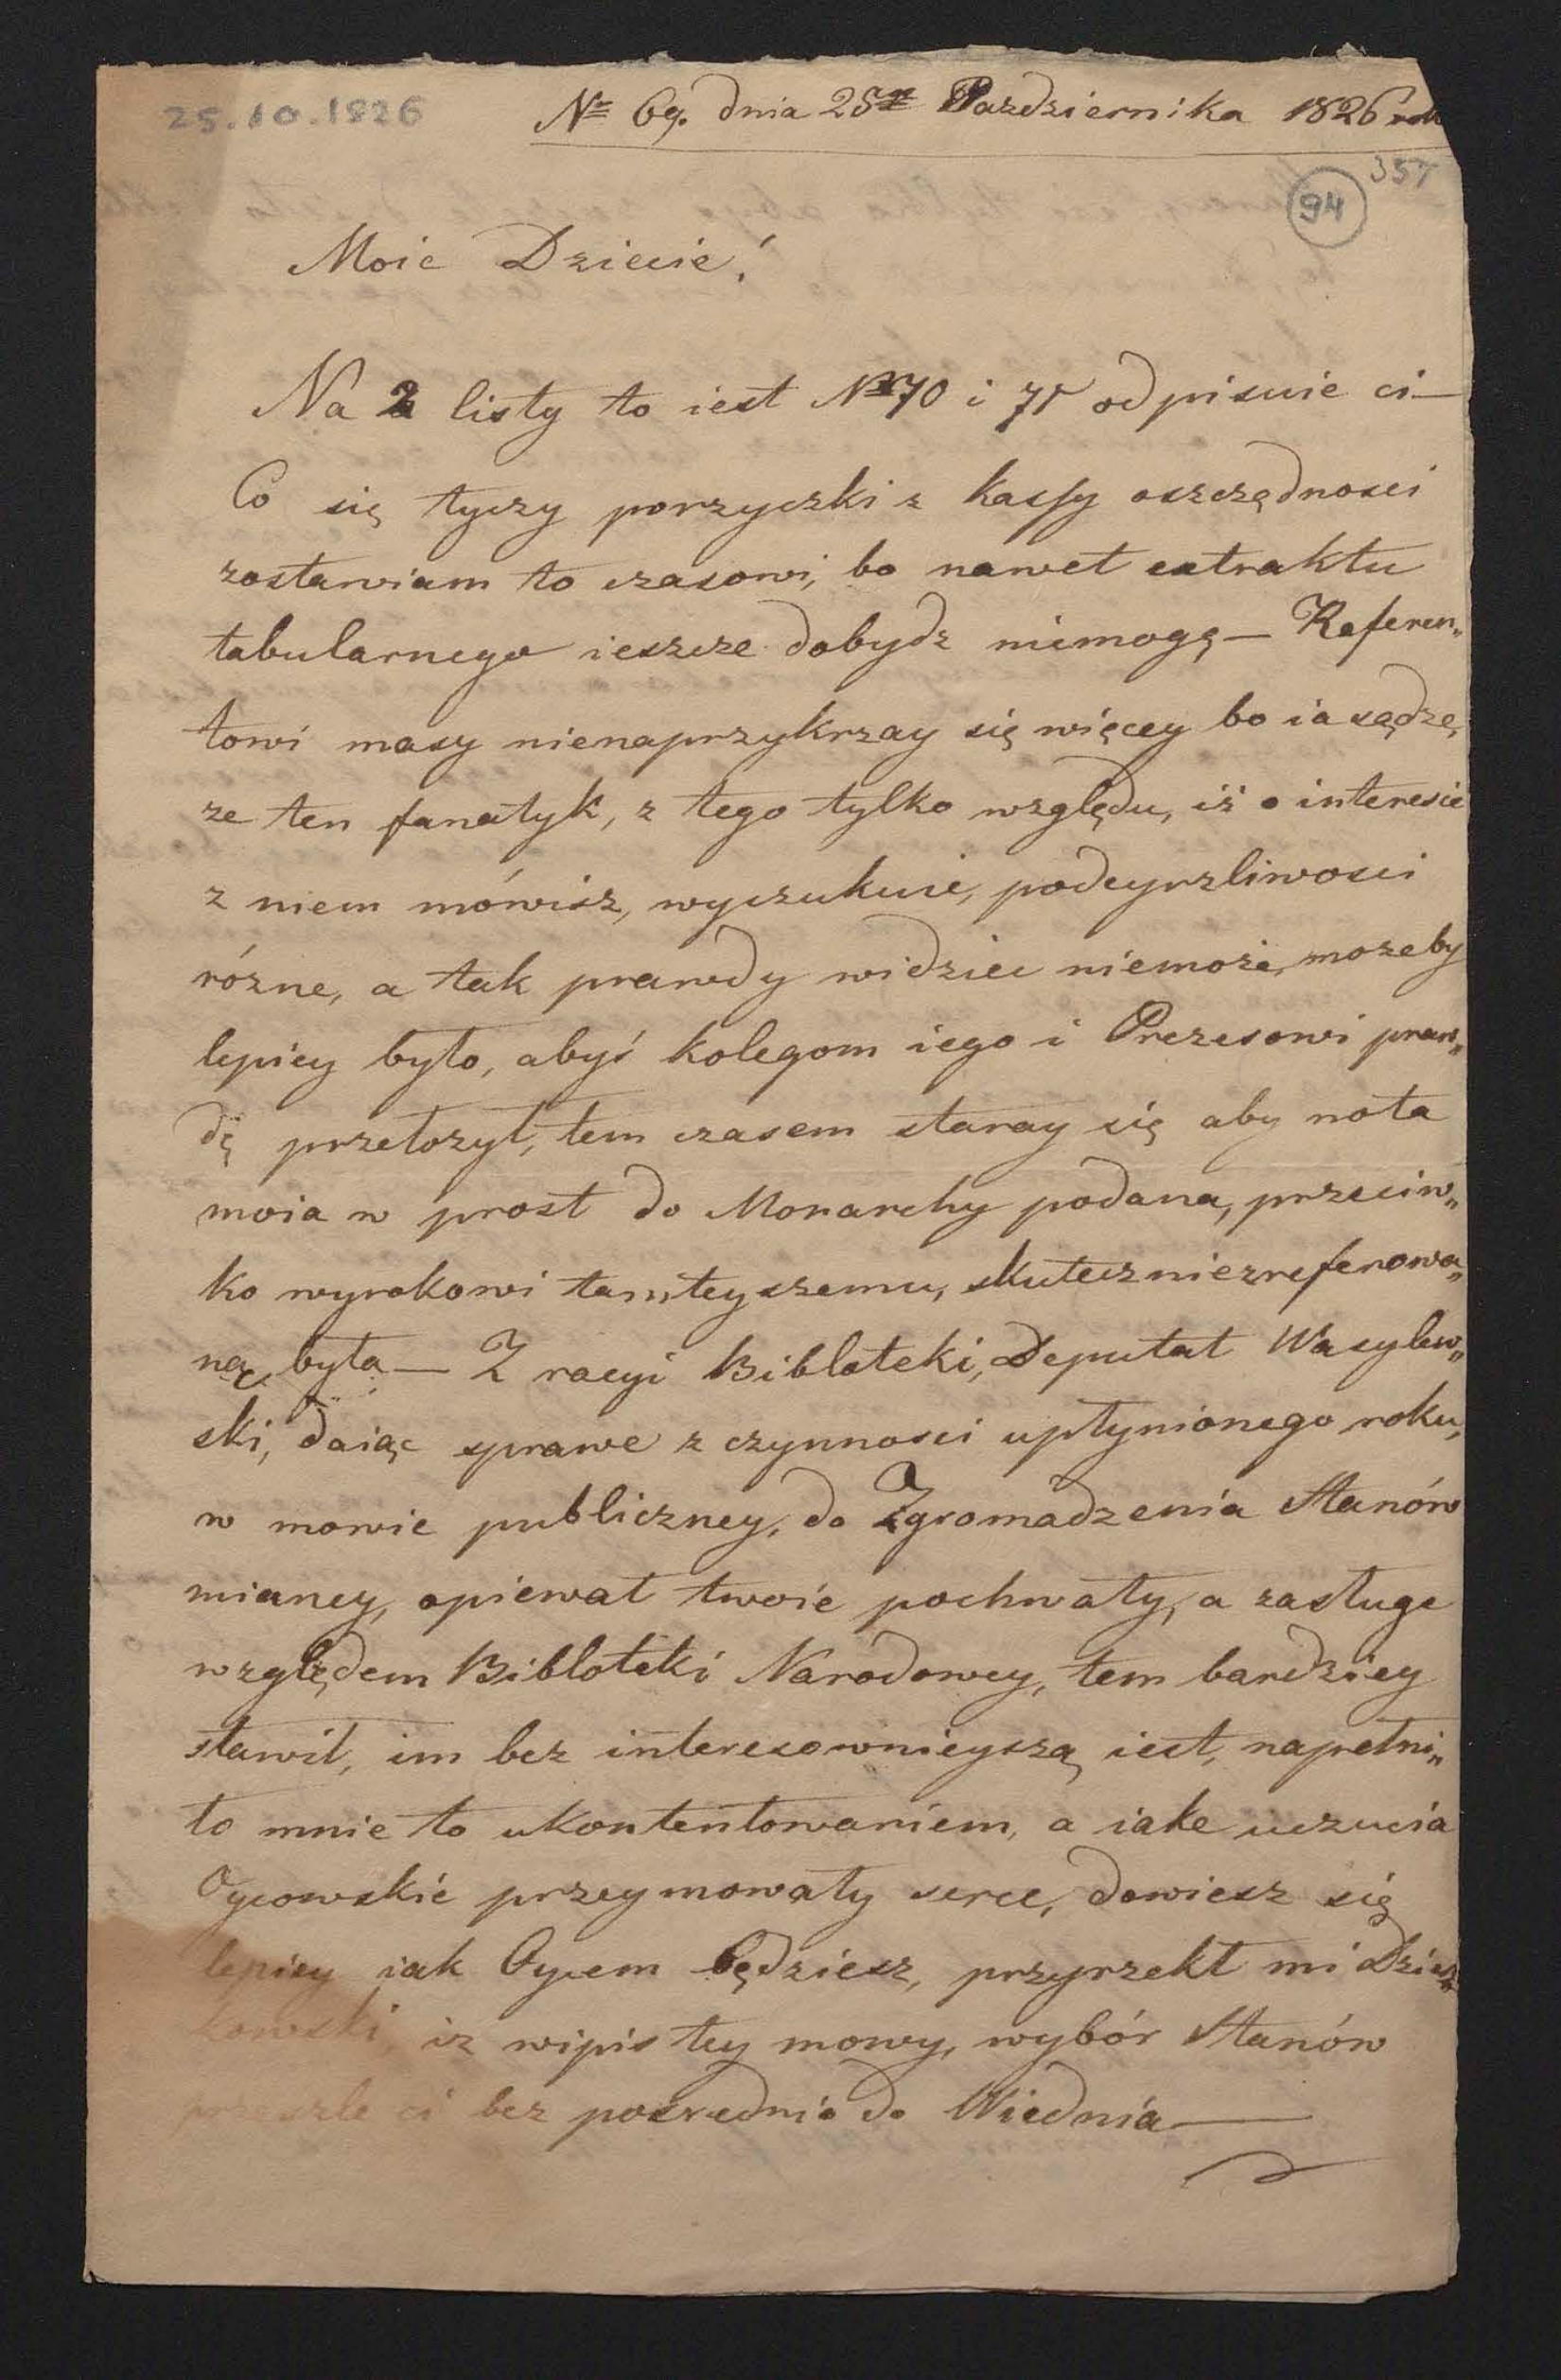 25.10.1826
No 69. dnia 25go Pazdziernika 1826 rok
357
94
Moie Dziecie!
Na 2 listy to iest No 70 i 71 odpisuie ci—
Co się tyczy porzyczki z Kassy oszczędnosci
zostawiam to czasowi, bo nawet extraktu
tabularnego ieszcze dobydz niemogę— Referen„
towi masy nienaprzykrzay się więcey bo ia sądzę,
ze ten fanatyk, z tego tylko względu, iż o interesie
z niem mówisz, wyczukuie, podeyrzliwosci
rózne, a tak prawdy widziec niemoże, mozeby
lepiey było, abyś kolegom iego i Prezesowi praw„
dę przełozył, tem czasem staray się aby nota
moia w prost do Monarchy podana, przeciw„
ko wyrokowi tamteyszemu, skutecznie zreferowa„
ną była— Z racyi Bibloteki, Deputat Wasylew„
ski, daiąc sprawe z czynnosci upłynionego roku,
w mowie publiczney, do Zgromadzenia Stanów
mianey, opiewał twoie pochwały, a zasługe
względem Bibloteki Narodowey, tem bardziey
sławił, im bez interesownieyszą iest, napełni„
ło mnie to ukontentowaniem, a iake uczucia
Oycowskie przeymowały serce, dowiesz się
lepiey iak Oycem będziesz, przyrzekł mi Dzierz„
kowski iz wipis tey mowy, wybór Stanów
przeszle ci bez posrednio do Wiednia—